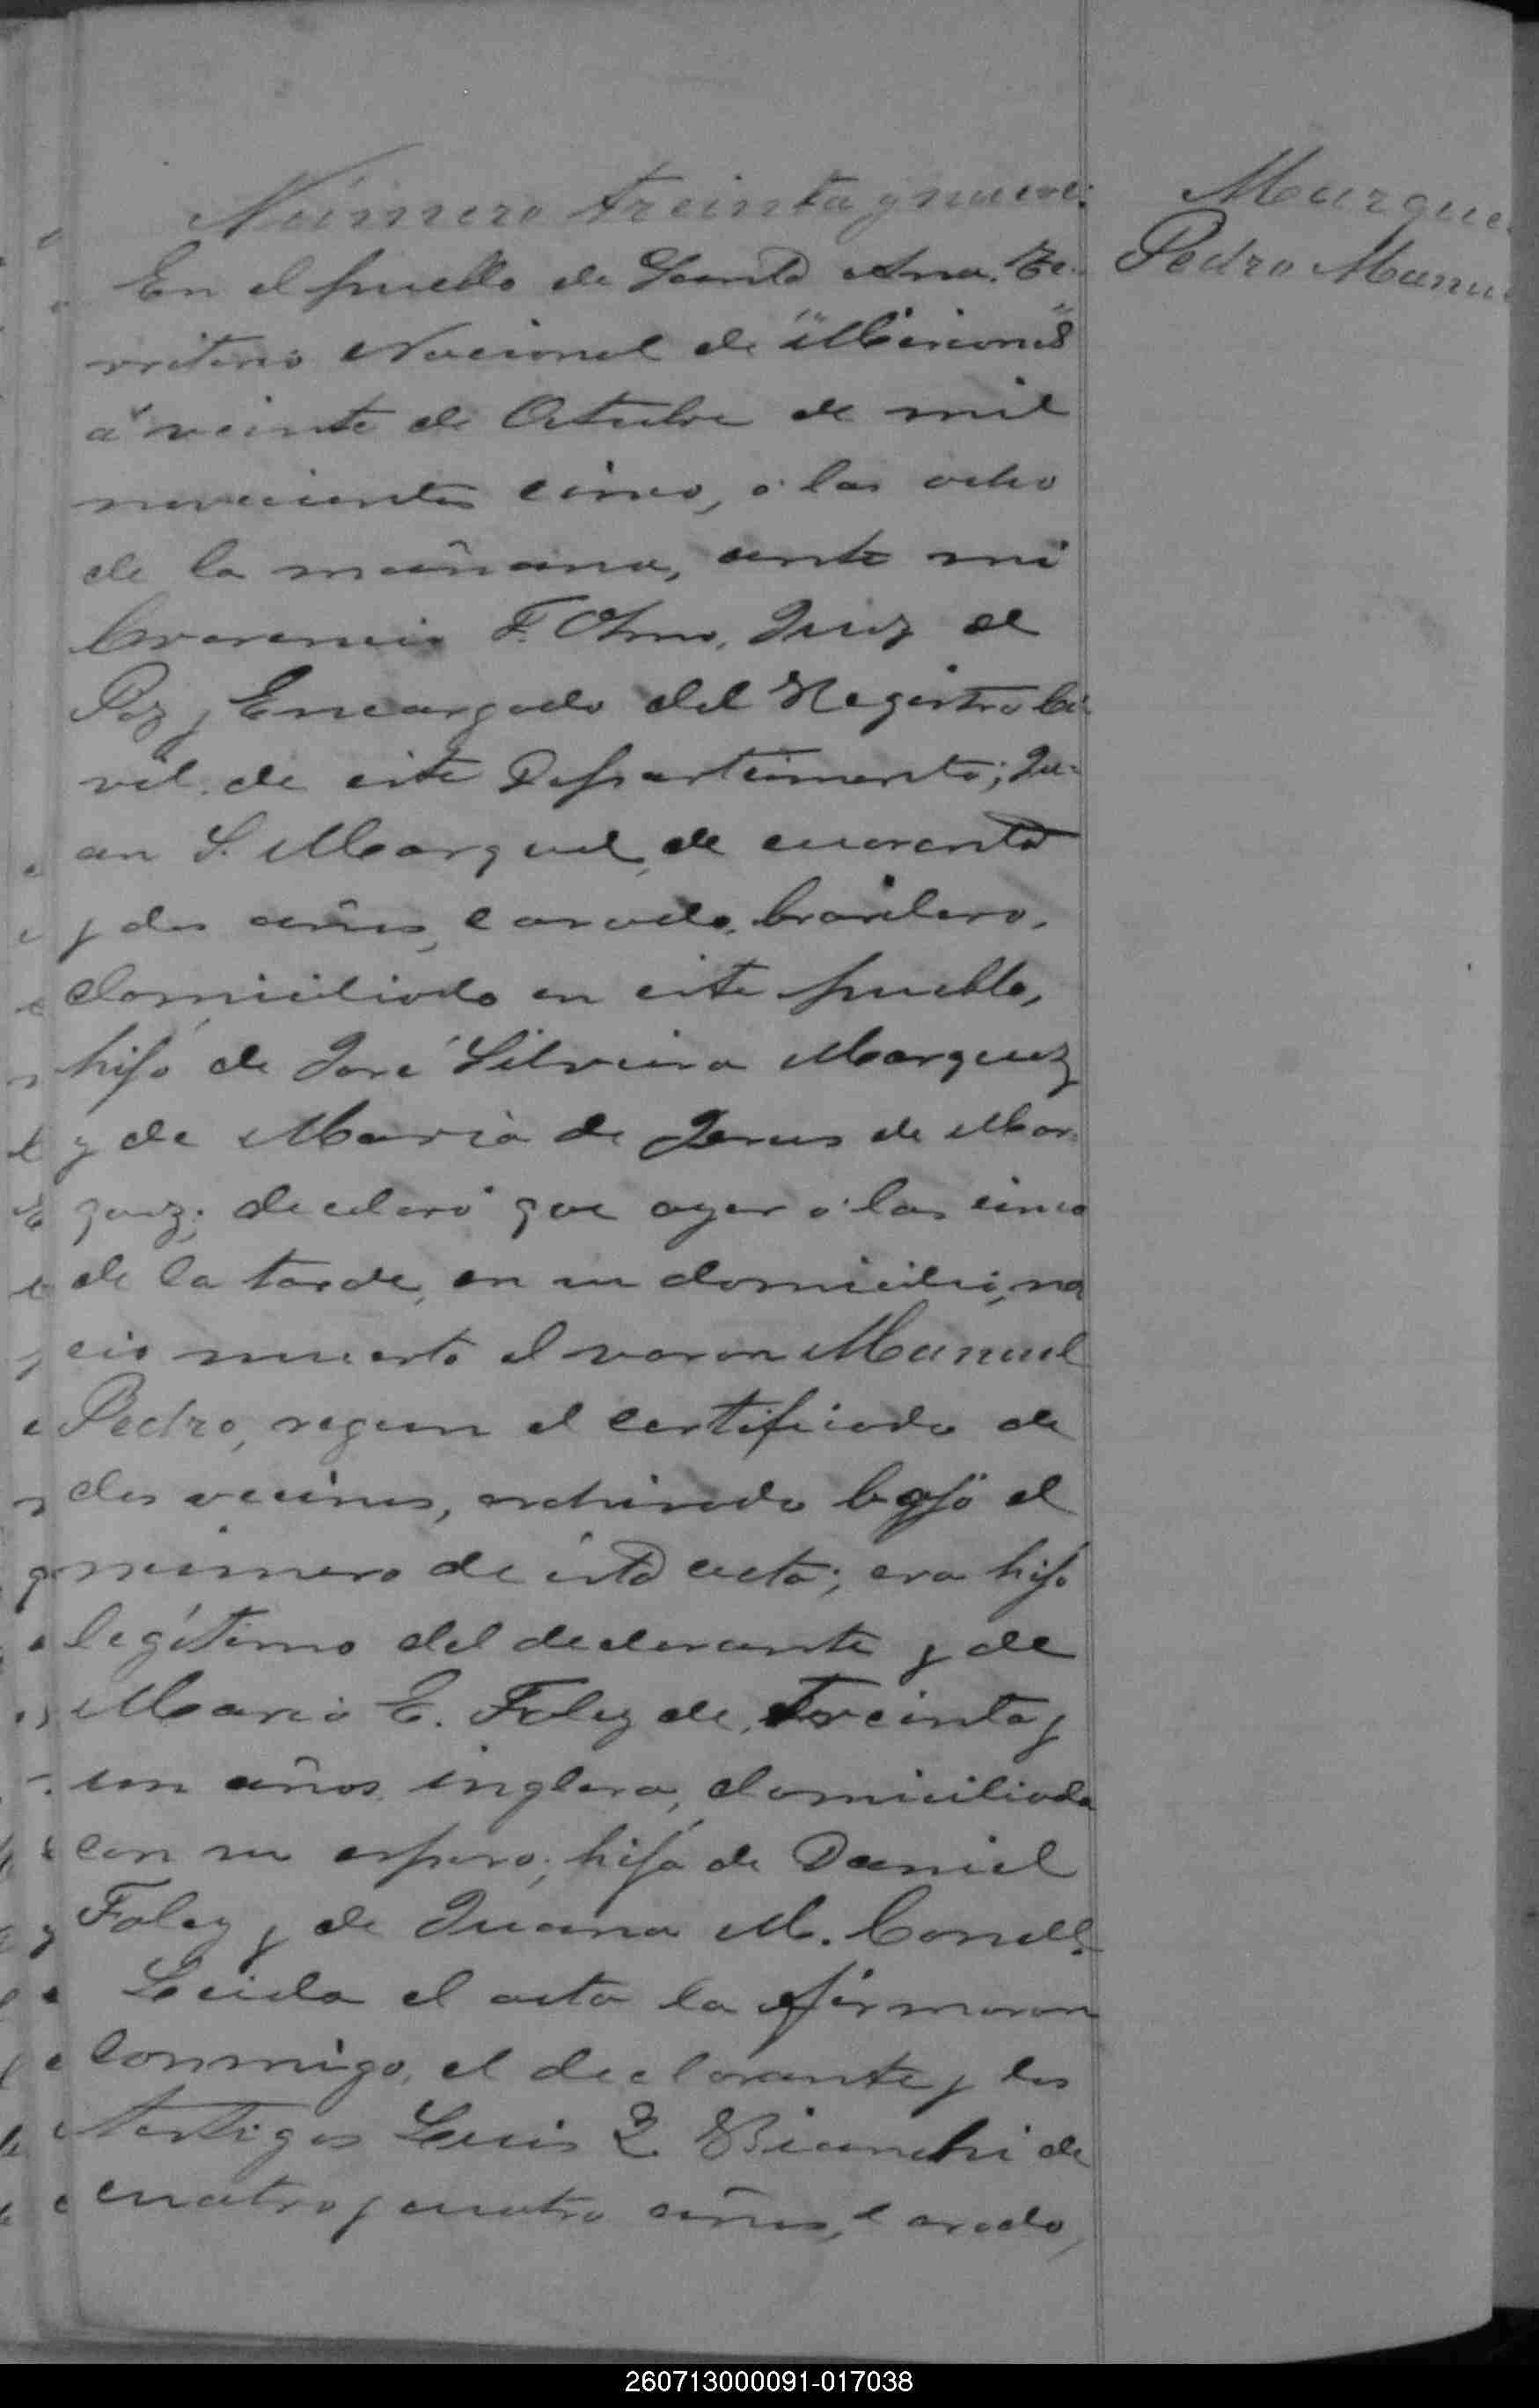 Número treinta y nueve:
Marque
Pedro Manu
En el pueblo de Santa Ana. Te-
rritorio Nacional de "Misiones"
á veinte de Octubre de mil
novecientos cinco, á las ocho
de la mañana, ante mi
F. Olmo, Juez de
Paz y Encargado del Registro Ci-
vil de este Departamento; Ju-
an S. Marquez, de cuarenta
y dos años, casado, brasilero,
domiciliado en este pueblo,
hijo de José Silveira Marquez
y de Maria de Jesus de Mar-
quez; declaró que ayer á las cinco
de la tarde, en su domicilio, na
cio muerto el varon Manuel
Pedro, segun el certificado de
dos vecinos, archivado bajo el
número de ésta acta; era hijo
legítimo del declarante y de
Maria E. Foley de, treinta y
un años, inglesa, domiciliada
con su esposo; hija de Daniel
Foley y de Juana M. Conell.
Leida el acta la firmaron
conmigo, el declarante y los
testigos Luis Bianchi de
cuatro y cuatro años, casado,
260713000091-017038